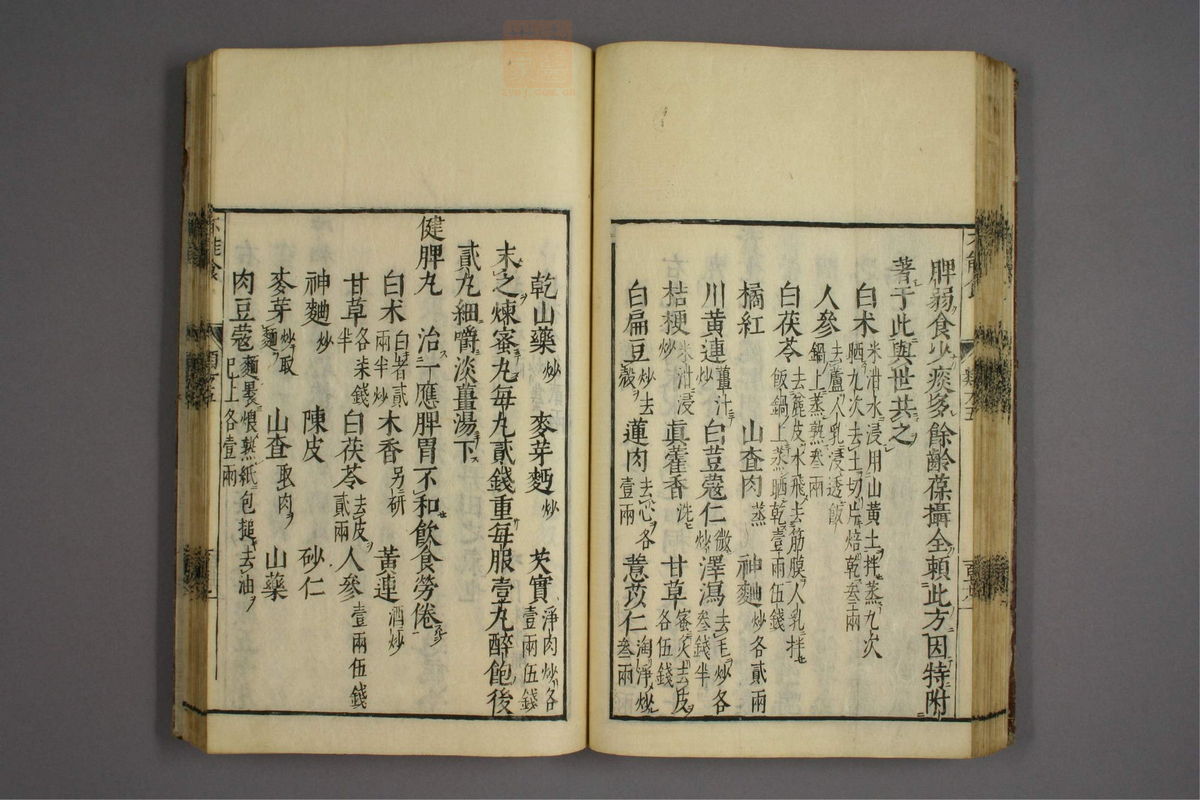 脾弱食少痰多餘齡葆攝全頼此方因特附
著于此與世共之
白术米泔水浸用山黄土拌蒸九次晒九次去土切片焙乾叁兩
人參去蘆人乳浸透飯鍋上蒸熟叁兩
白茯苓去麄皮水飛去筋膜人乳拌飯鍋上蒸晒乾壹兩伍錢
橘紅 山查肉蒸 神麯炒各貳兩
川黄連薑汁炒 白荳蔻仁微炒 澤瀉去毛炒各叁錢半
桔梗米泔浸炒 眞藿香洗 甘草蜜炙去皮各伍錢
白扁豆炒去殼 蓮肉去心各壹兩 薏苡仁淘淨炒叁兩
乾山藥炒 麥芽麪炒 芡實淨肉炒各壹兩伍錢
末之煉蜜丸每丸貳錢重每服壹丸醉飽後
貳丸細嚼淡薑湯下
健脾丸 治一應脾胃不和飲食勞倦
白术白者貳兩半炒 木香另研 黄連酒炒
甘草各柒錢半 白茯苓去皮貳兩 人參壹兩伍錢
神麯炒 陳皮 砂仁
麥芽炒取麵 山查取肉 山藥
肉豆蔻麵裹煨熟紙包搥去油已上各壹兩